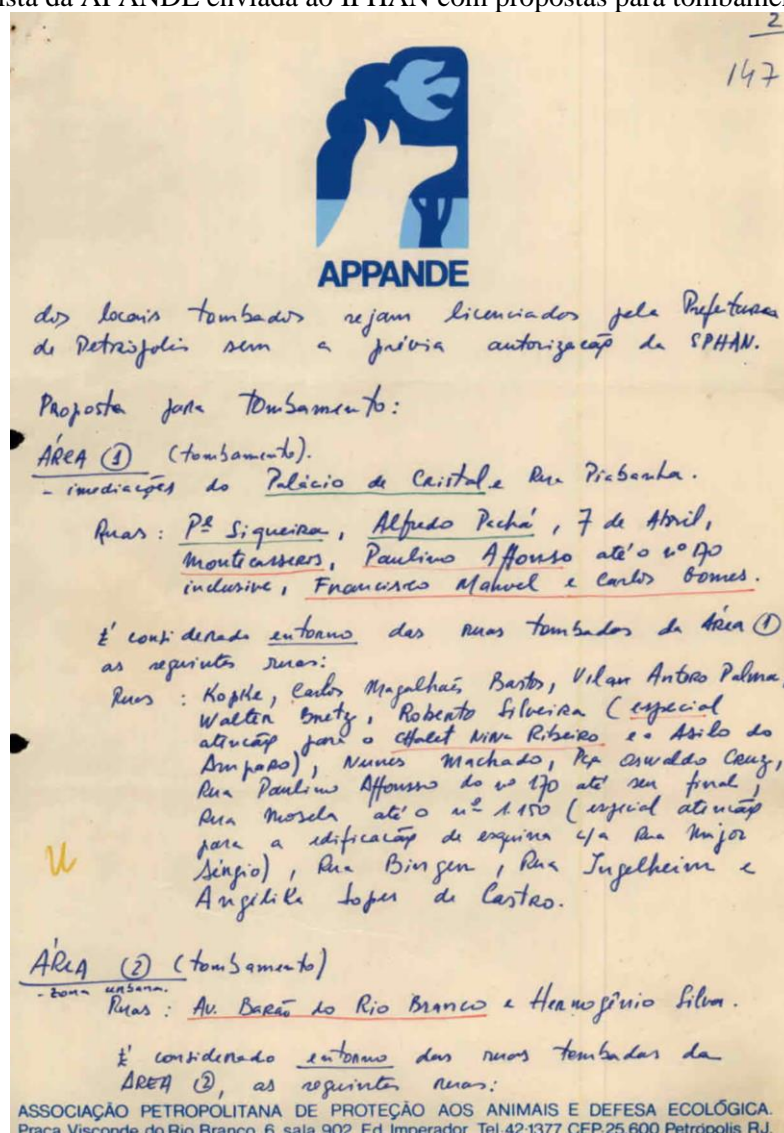 ista da APANDE enviada ao IPHAN com propostas para tombame
2
147
APPANDE
dos locais tombados sejam licenciados pela Prefeitura
de Petrópolis sem a prévia autorização da SPHAN.
Proposta para Tombamento:
ÁREA ① (tombamento).
- imediações do Palácio de Cristal e Rua Piabanha.
Ruas : Pe Siqueira, Alfredo Pachá, 7 de Abril,
Montecaseros, Paulino Affonso até o nº 170
inclusive, Francisco Manoel e Carlos Gomes.
É considerado entorno das ruas tombadas da Área ①
as seguintes ruas:
Ruas : Kopke, Carlos Magalhães Bastos, Vilan Antoro Palma,
Walter Bretz, Roberto Silveira (especial
atenção para o Chalet Nina Ribeiro e o Asilo do
Amparo), Nunes Machado, Pça Oswaldo Cruz,
Rua Paulino Affonso do nº 170 até seu final,
Rua Mosela até o nº 1.150 (especial atenção
para a edificação de esquina c/a Rua Major
Sérgio), Rua Bingen, Rua Ingelheim e
Angélika Lopes de Castro.
ÁREA ② (tombamento)
- zona urbana.
Ruas : Av. Barão do Rio Branco e Hermogênio Silva.
É considerado entorno das ruas tombadas da
ÁREA ②, as seguintes ruas:
ASSOCIAÇÃO PETROPOLITANA DE PROTEÇÃO AOS ANIMAIS E DEFESA ECOLÓGICA.
Praça Visconde do Rio Branco, 6, sala 902, Ed. Imperador, Tel.42-1377 CEP.25.600 Petrópolis R.J.